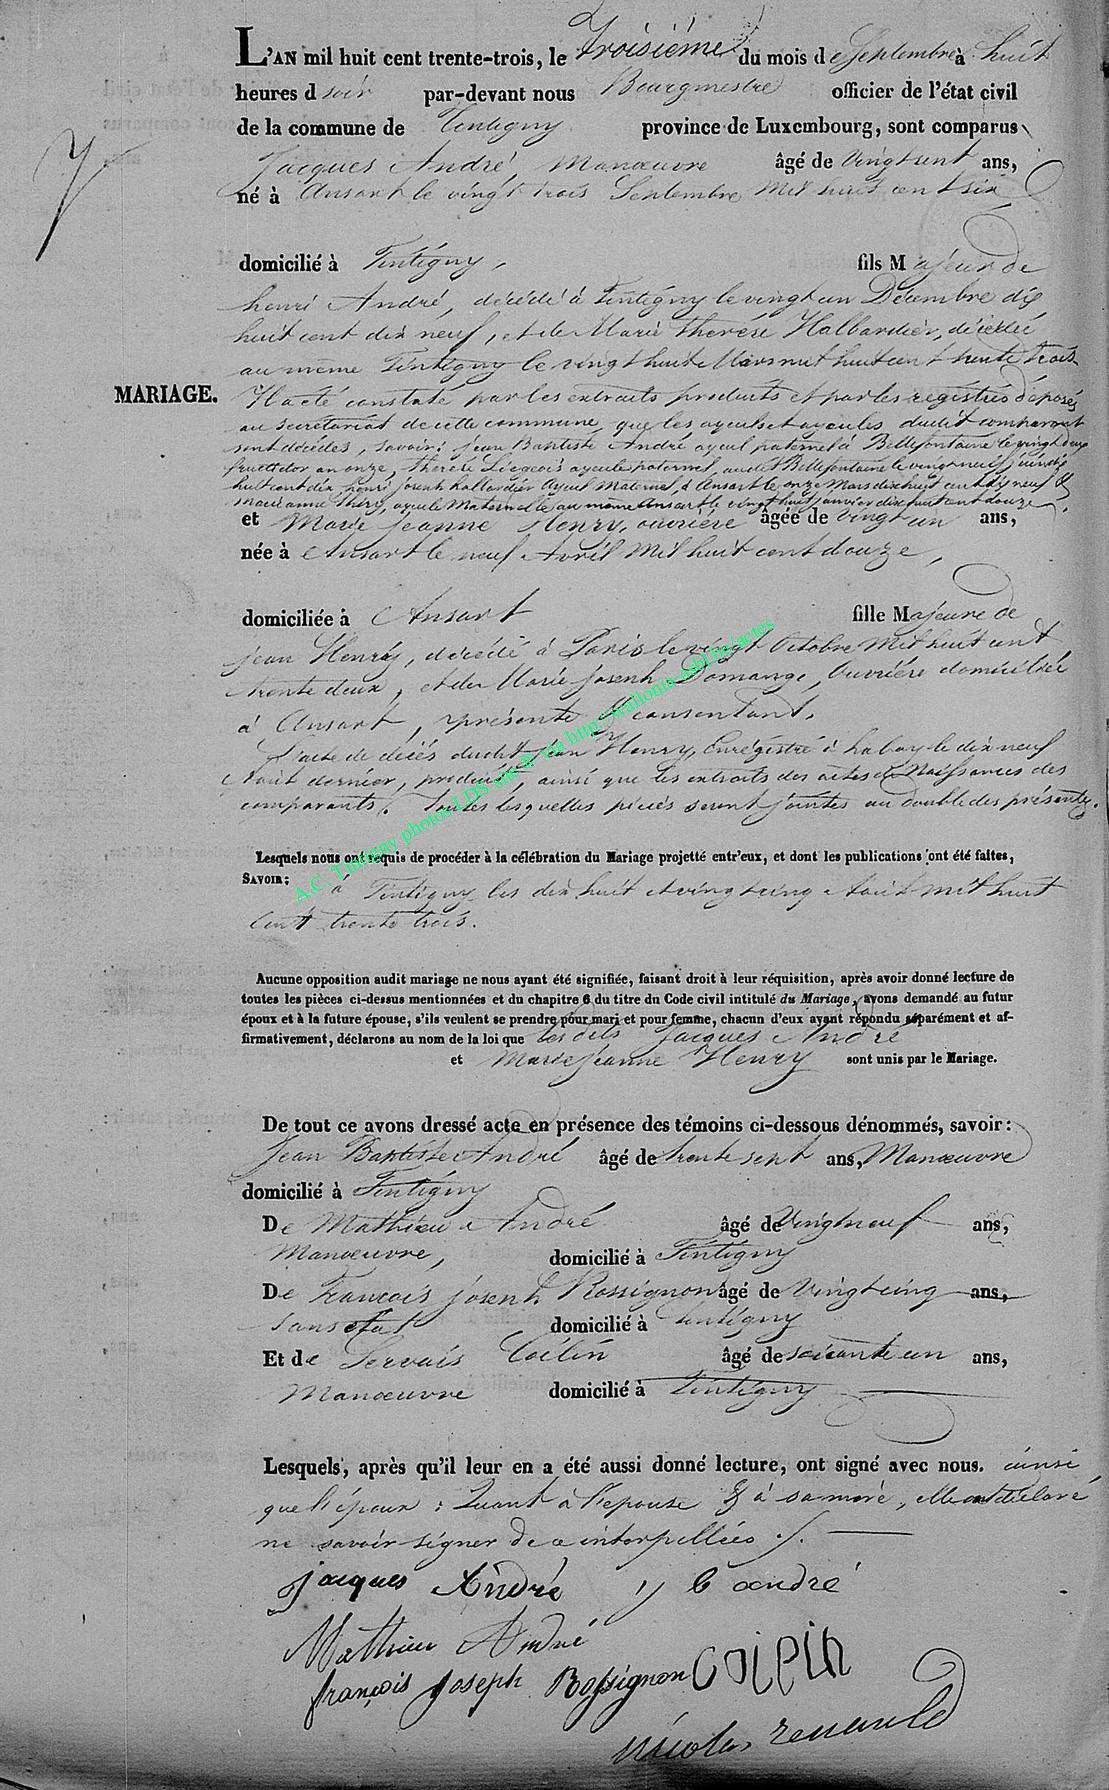 L'AN mil huit cent trente-trois, le Troisiéme du mois de Septembre à huit
heures d soir par-devant nous Bourgmestre officier de l'état civil
de la commune de Tintigny province de Luxembourg, sont comparus
7
Jacques André Manœuvre âgé de Vingt sept ans,
né à Ansart le vingt trois Septembre mil huit cent six
domicilié à Tintigny, fils Majeur de
henri André, décédé à Tintigny le vingt un Décembre dix
huit cent dix neuf, et de Marie therése Hallardier, décédée
au même Tintigny le vingt huit Mars mil huit cent trente trois
MARIAGE.
Il a été constaté par les extraits produits et par les registres déposés
au secrétariat de cette commune, que les ayeuls et ayeules dudit comparant
sont décédés, savoir: jean Baptiste André ayeul paternel à Bellefontaine le vingt deux
fructidor an onze, therese Liegeois ayeule paternel, audit Bellefontaine le vingt neuf
huit cent dix henri joseph hallardier Ayeul Maternel, à Ansart le onze Mars dix huit cent dix neuf &
Marie anne Thiry, ayeule Maternelle au même Ansart le vingt huit janvier dix huit cent douze
et Marie jeanne Henry, ouvrière âgée de vingt un ans,
née à Ansart le neuf Avril mil huit cent douze,
domiciliée à Ansart fille Majeure de
jean Henry, décédé à Paris le vingt Octobre Mil huit cent
trente deux, et de Marie joseph Domange, Ouvriére domiciliée
à Ansart, présente & consentant.
L'acte de décés dudit jean Henry, Enrégistré à habay le dix neuf
Août dernier, produit, ainsi que les extraits des actes de Naissances des
comparants. Toutes lesquelles piéces seront jointes au double des présentes.
A.C. Tintigny photos LDS site @ via http://wallonia-asbl.be/actes
Lesquels nous ont requis de procéder à la célébration du Mariage projetté entr'eux, et dont les publications ont été faites,
SAVOIR: à Tintigny les dix huit et vingt cinq Août mil huit
Cent trente trois.
Aucune opposition audit mariage ne nous ayant été signifiée, faisant droit à leur réquisition, après avoir donné lecture de
toutes les pièces ci-dessus mentionnées et du chapitre 6 du titre du Code civil intitulé du Mariage, avons demandé au futur
époux et à la future épouse, s'ils veulent se prendre pour mari et pour femme, chacun d'eux ayant répondu séparément et af-
firmativement, déclarons au nom de la loi que les dits Jacques André
et Marie jeanne Henry sont unis par le Mariage.
De tout ce avons dressé acte en présence des témoins ci-dessous dénommés, savoir:
Jean Baptiste André âgé de trente sept ans, Manœuvre
domicilié à Tintigny
De Mathieu André âgé de Vingt neuf ans,
Manœuvre, domicilié à Tintigny
De francois joseph Rossignon âgé de Vingt cinq ans,
Sans etat domicilié à Tintigny
Et de Servais Coilin âgé de soixante un ans,
Manœuvre domicilié à Tintigny
Lesquels, après qu'il leur en a été aussi donné lecture, ont signé avec nous. ainsi
que l'époux; Quant à l'epouse & à sa mére, elles ont déclaré
ne savoir signer de ce interpellées ./.
jacques André j b andré
Mathieu André
françois Joseph Rossignon coilin
nicolas renauld